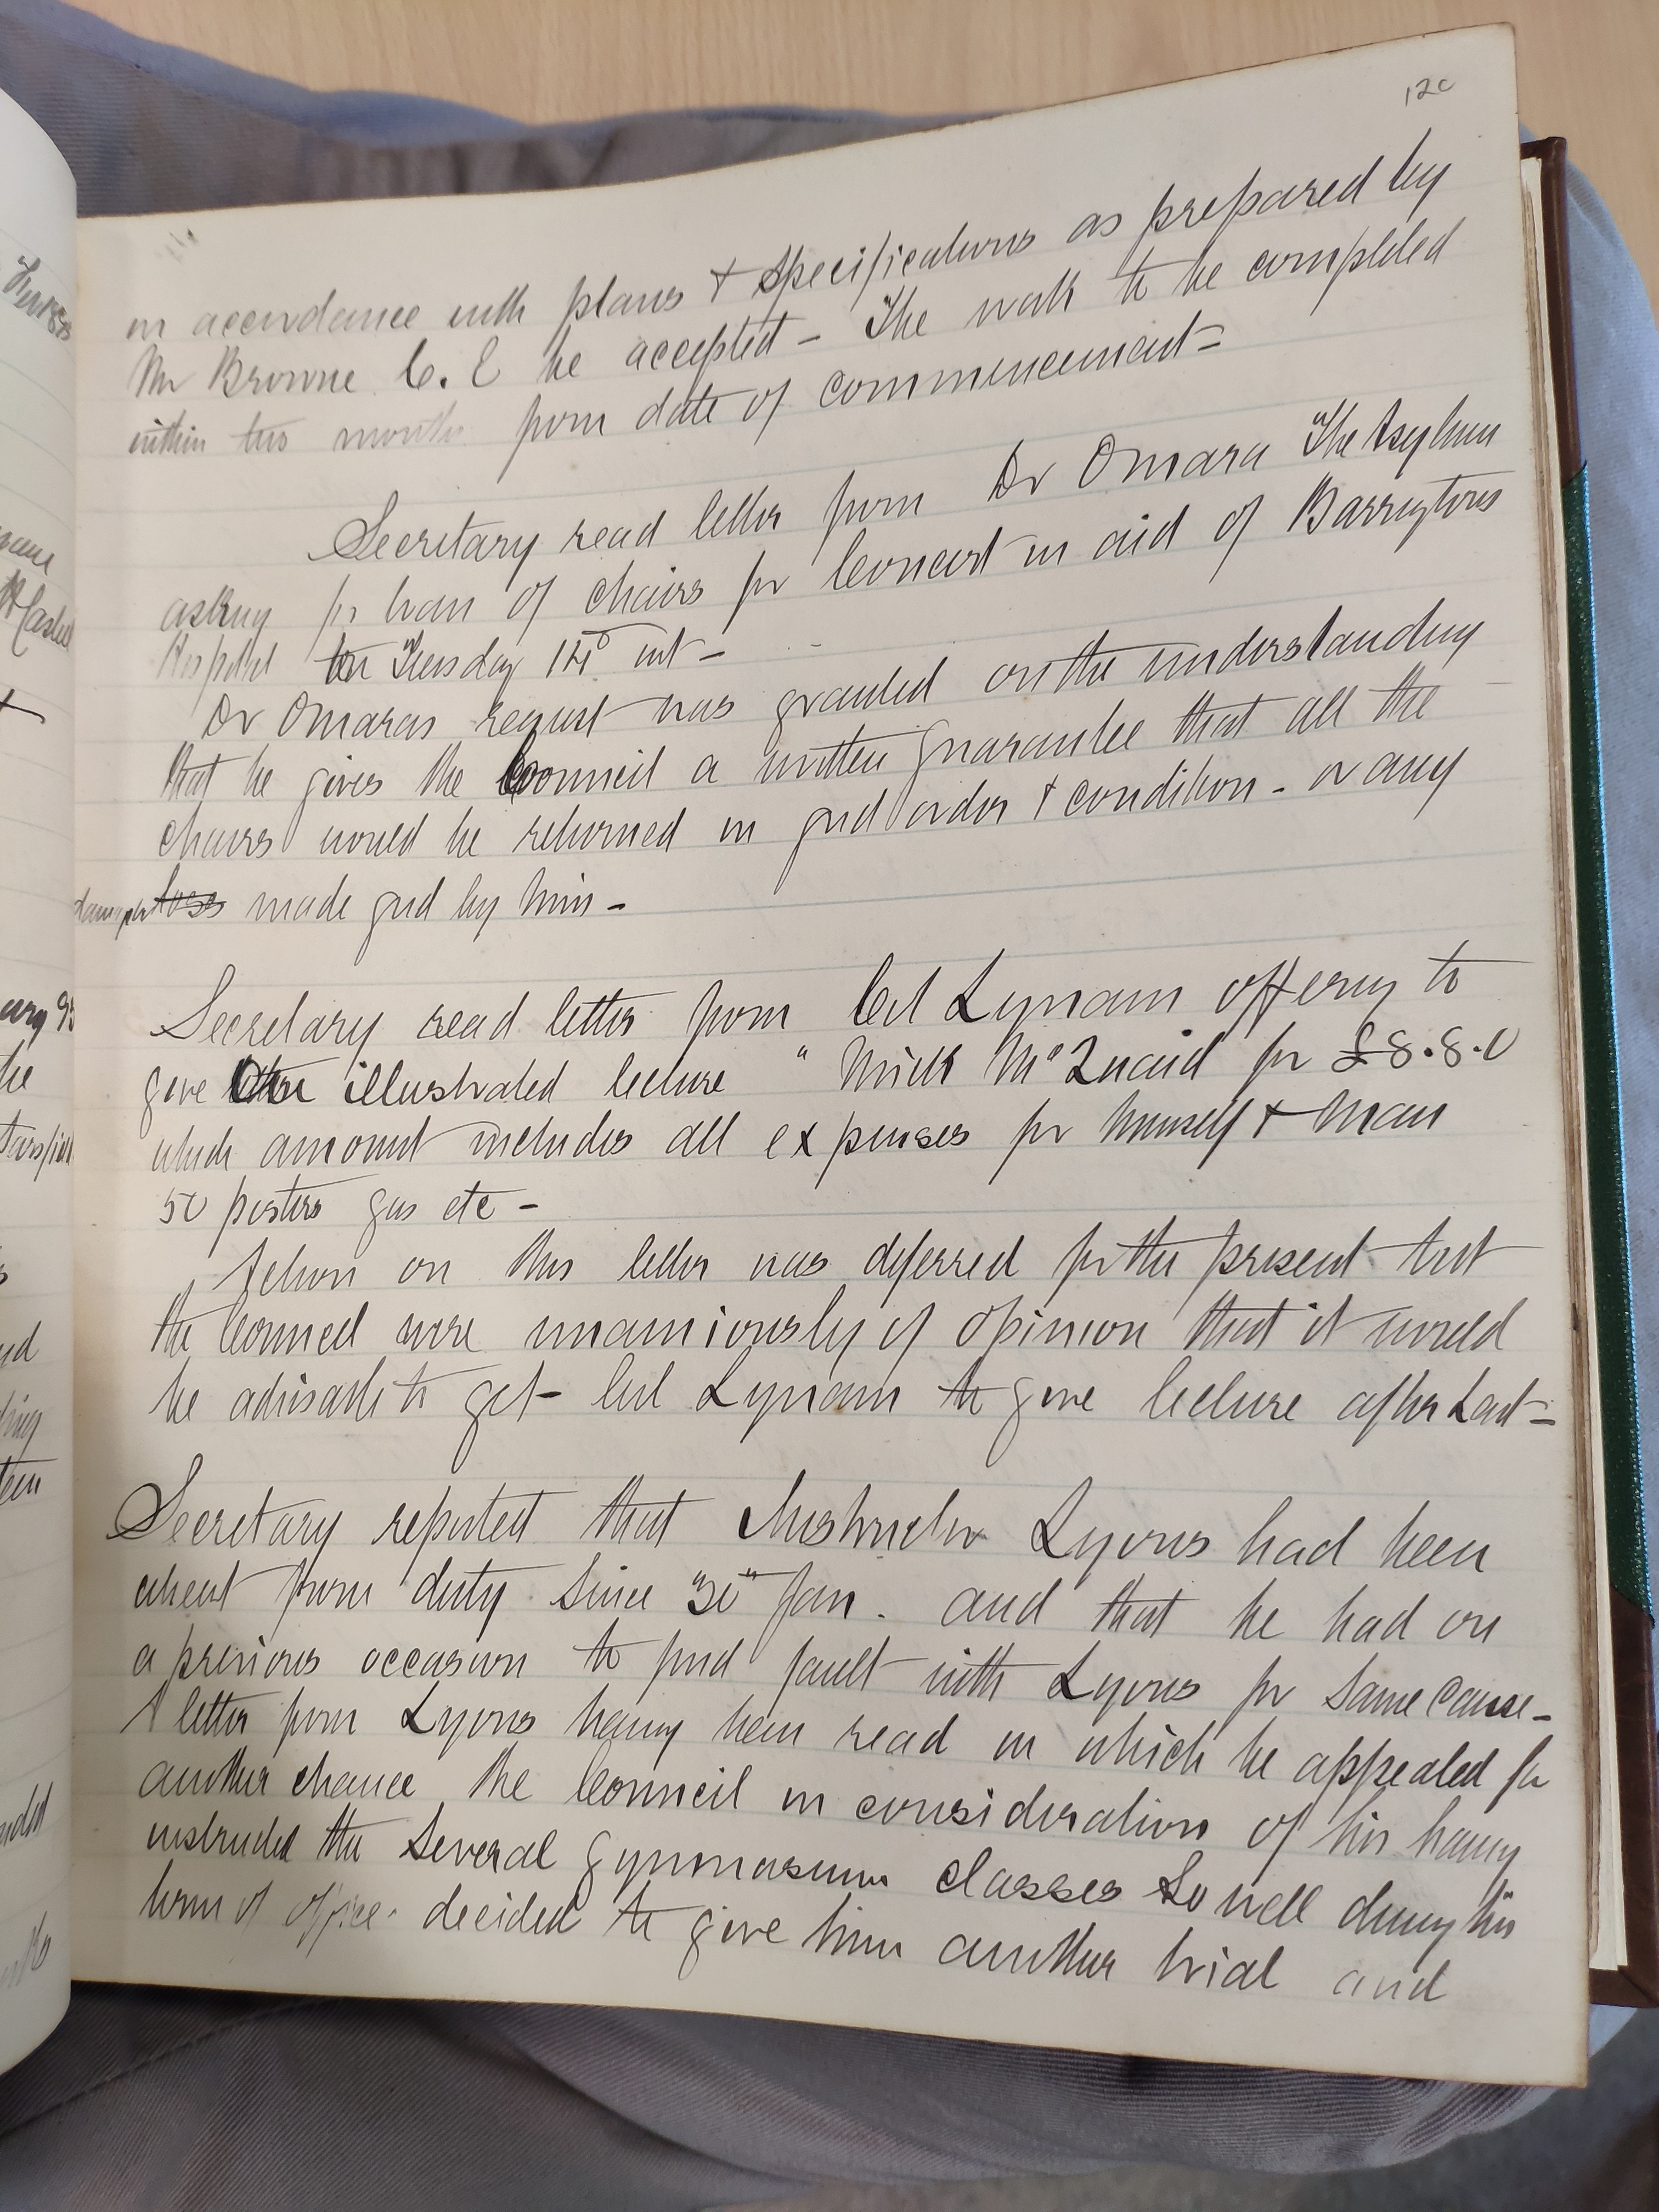 120
in accordance with plans + specifications as prepared by
Mr Browne C. E be accepted - The work to be completed
within two months from date of commencement -
Secretary read letter from Dr Omara The Asylum
asking for loan of chairs for Concert in aid of Barringtons
Hospital on Tuesday 14th inst -
Dr Omaras request was granted on the understanding
that he gives the Council a written guarantee that all the
chairs would be returned in good order + condition - or any
damage loss made good by him -
Secretary read letter from Col Lynam offering to
give illustrated lecture " Mick McQuaid for £8.8.0
which amount includes all expenses for himself + man
50 posters gas etc -
Action on this letter was deferred for the present but
the Council were unaniously of opinion that it would
be advisable to get Col Lynam to give lecture after Lent -
Secretary reported that Instructor Lyons had been
absent from duty since "30" Jan. and that he had on
a previous occasion to find fault with Lyons for same cause -
A letter from Lyons having been read in which he appealed for
another chance the Council in consideration of his having
instructed the several gymnasium classes so well during his
term of office decided to give him another trial and